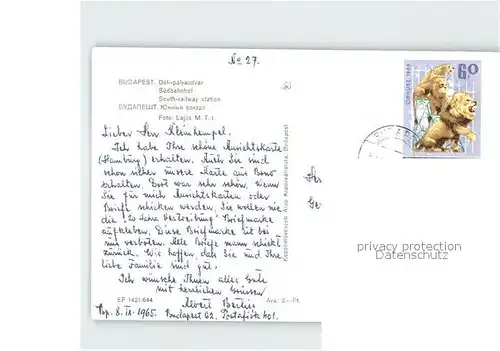 No 27.
BUDAPEST. Déli-pályaudvar
Südbahnhof
South-railway station
БУДАПЕШТ. Южный вокзал
Foto: Lajos M. T. I.
Lieber Herr Kleinhempel.
Ich habe Ihre schöne Ansichtskarte
(Hamburg) erhalten. Auch Sie sind
schon selber unsere Karte aus Bono
erhalten. Dort war sehr schön. Wenn
Sie für mich Ansichtskarten oder
Briefe schicken werden, Sie wollen nie
die "20 Jahre Vertreibung" Briefmarke
aufkleben. Diese Briefmarke ist bei
uns verboten. Alle Briefe mann schickt
zurück. Wir hoffen, das Sie und Ihre
liebe Familie sind gut.
Ich wünsche Ihnen alles Gute
mit herzlichen Grüssen
Albert
Bp. 8. IX. 1965. Budapest 62. Postafiók 401.
EF 1421/644
Ára: 2.— Ft
Képzőművészeti Alap Kiadóvállalata, Budapest
CIRKUSZ 1965
60
privacy protection
Datenschutz